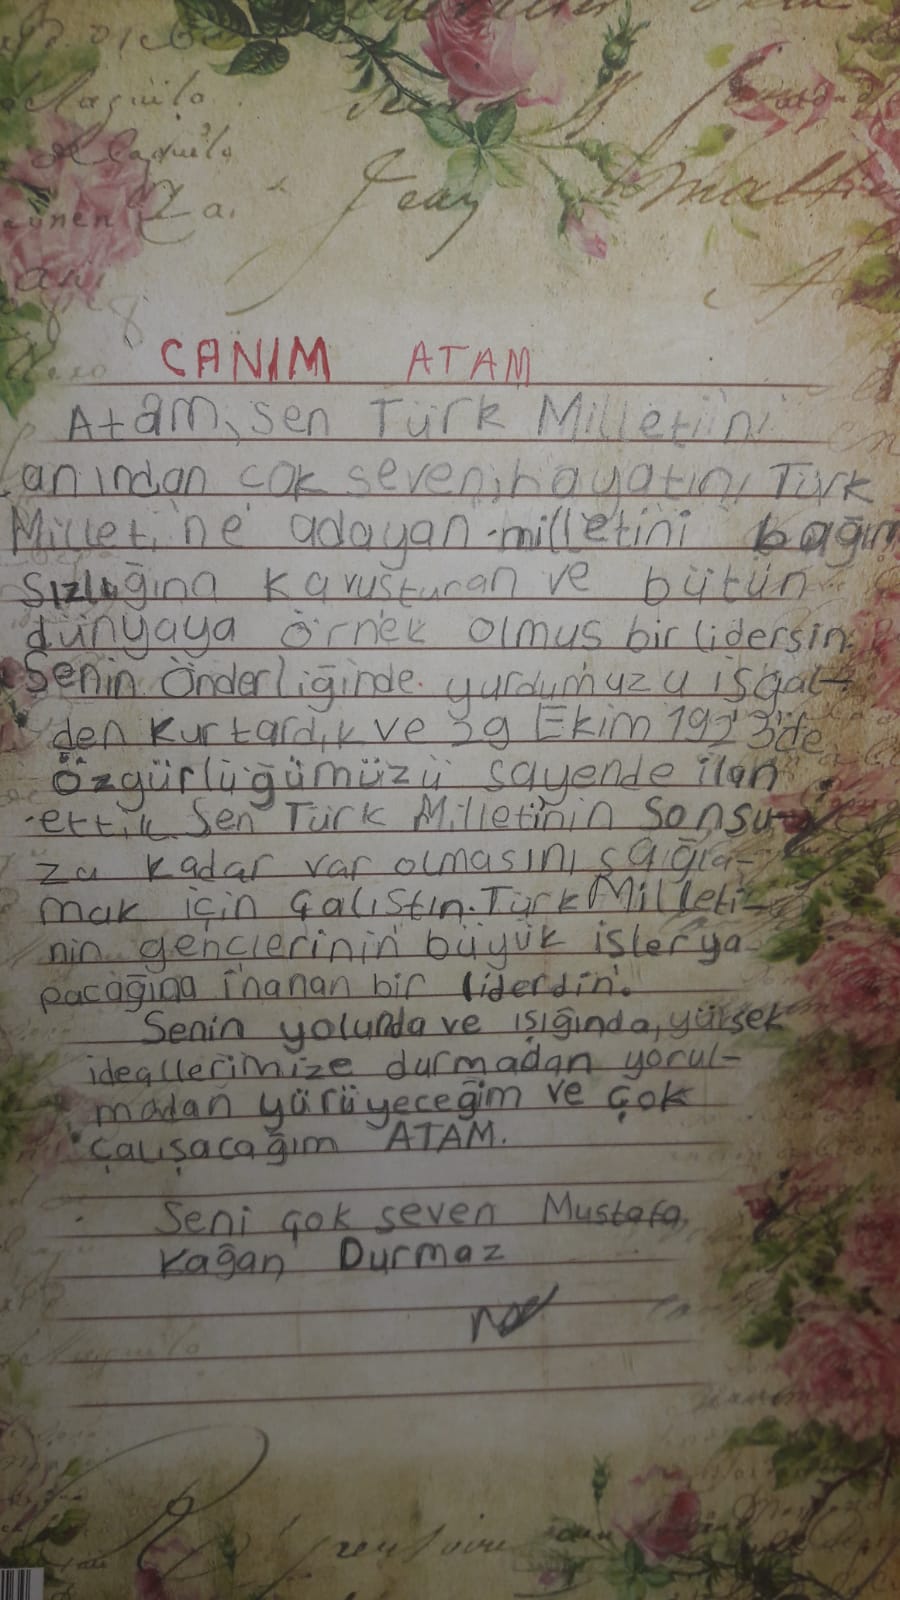 CANIM ATAM
Atam, sen Türk Milleti'ni
canından çok seven, hayatını Türk
Milleti'ne adayan milletini bağım
sızlığına kavuşturan ve bütün
dünyaya örnek olmuş bir lidersin.
Senin Önderliğinde yurdumuzu işgal-
den kurtardık ve 29 Ekim 1923'de
Özgürlüğümüzü sayende ilan
ettik. Sen Türk Milletinin Sonsu-
za kadar var olmasını sağla-
mak için çalıştın. Türk Milleti-
nin gençlerinin büyük işler ya-
pacağına inanan bir liderdin.
Senin yolunda ve ışığında, yüksek
ideallerimize durmadan yorul-
madan yürüyeceğim ve çok
çalışacağım ATAM.
Seni çok seven Mustafa
Kağan Durmaz